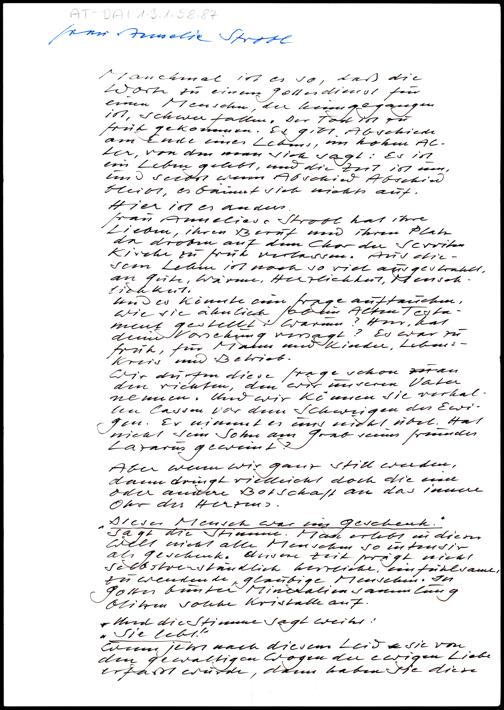 AT-DAI 1.3.1.58.87
Frau Annelie Strobl
Manchmal ist es so, daß die
Worte zu einem Gottesdienst für
einen Menschen, der heimgegangen
ist, schwer fallen. Der Tod ist zu
früh gekommen. Es gibt Abschiede
am Ende eines Lebens, im hohen Al-
ter, von dem man sich sagt: Es ist
ein Leben gelebt, und die Zeit ist um,
und selbst wenn Abschied Abschied
bleibt, es bäumt sich nichts auf.
Hier ist es anders.
Frau Anneliese Strobl hat ihre
Lieben, ihren Beruf und ihren Platz
da droben auf dem Chor der Serviten
Kirche zu früh verlassen. Aus die-
sem Leben ist noch so viel ausgestrahlt,
an Güte, Wärme, Herzlichkeit, Mensch-
lichkeit.
Und es könnte eine Frage auftauchen,
wie sie ähnlich Job im Alten Testa-
ment gestellt: Warum? Herr, hat
deine Vorsehung versagt? Es war zu
früh, für Mann und Kinder, Lebens-
kreis und Betrieb.
Wir dürfen diese Frage schon an
den richten, den wir unseren Vater
nennen. Und wir können sie verhal-
len lassen vor dem Schweigen des Ewi-
gen. Er nimmt es uns nicht übel. Hat
nicht sein Sohn am Grab seines Freundes
Lazarus geweint?
Aber wenn wir ganz still werden,
dann dringt vielleicht doch die eine
oder andere Botschaft an das innere
Ohr des Herzens.
"Dieser Mensch war ein Geschenk."
sagt die Stimme. Man erlebt in dieser
Welt nicht alle Menschen so intensiv
als Geschenk. Unsere Zeit prägt nicht
selbstverständlich herzliche, einfühlsame,
zuwendende, gläubige Menschen. In
Gottes bunter Mineraliensammlung
blitzen solche Kristalle auf.
Und die Stimme sagt weiter:
"Sie lebt!"
Wenn jetzt nach diesem Leid sie von
den gewaltigen Wogen der ewigen Liebe
erfaßt würde, dann haben Sie diese